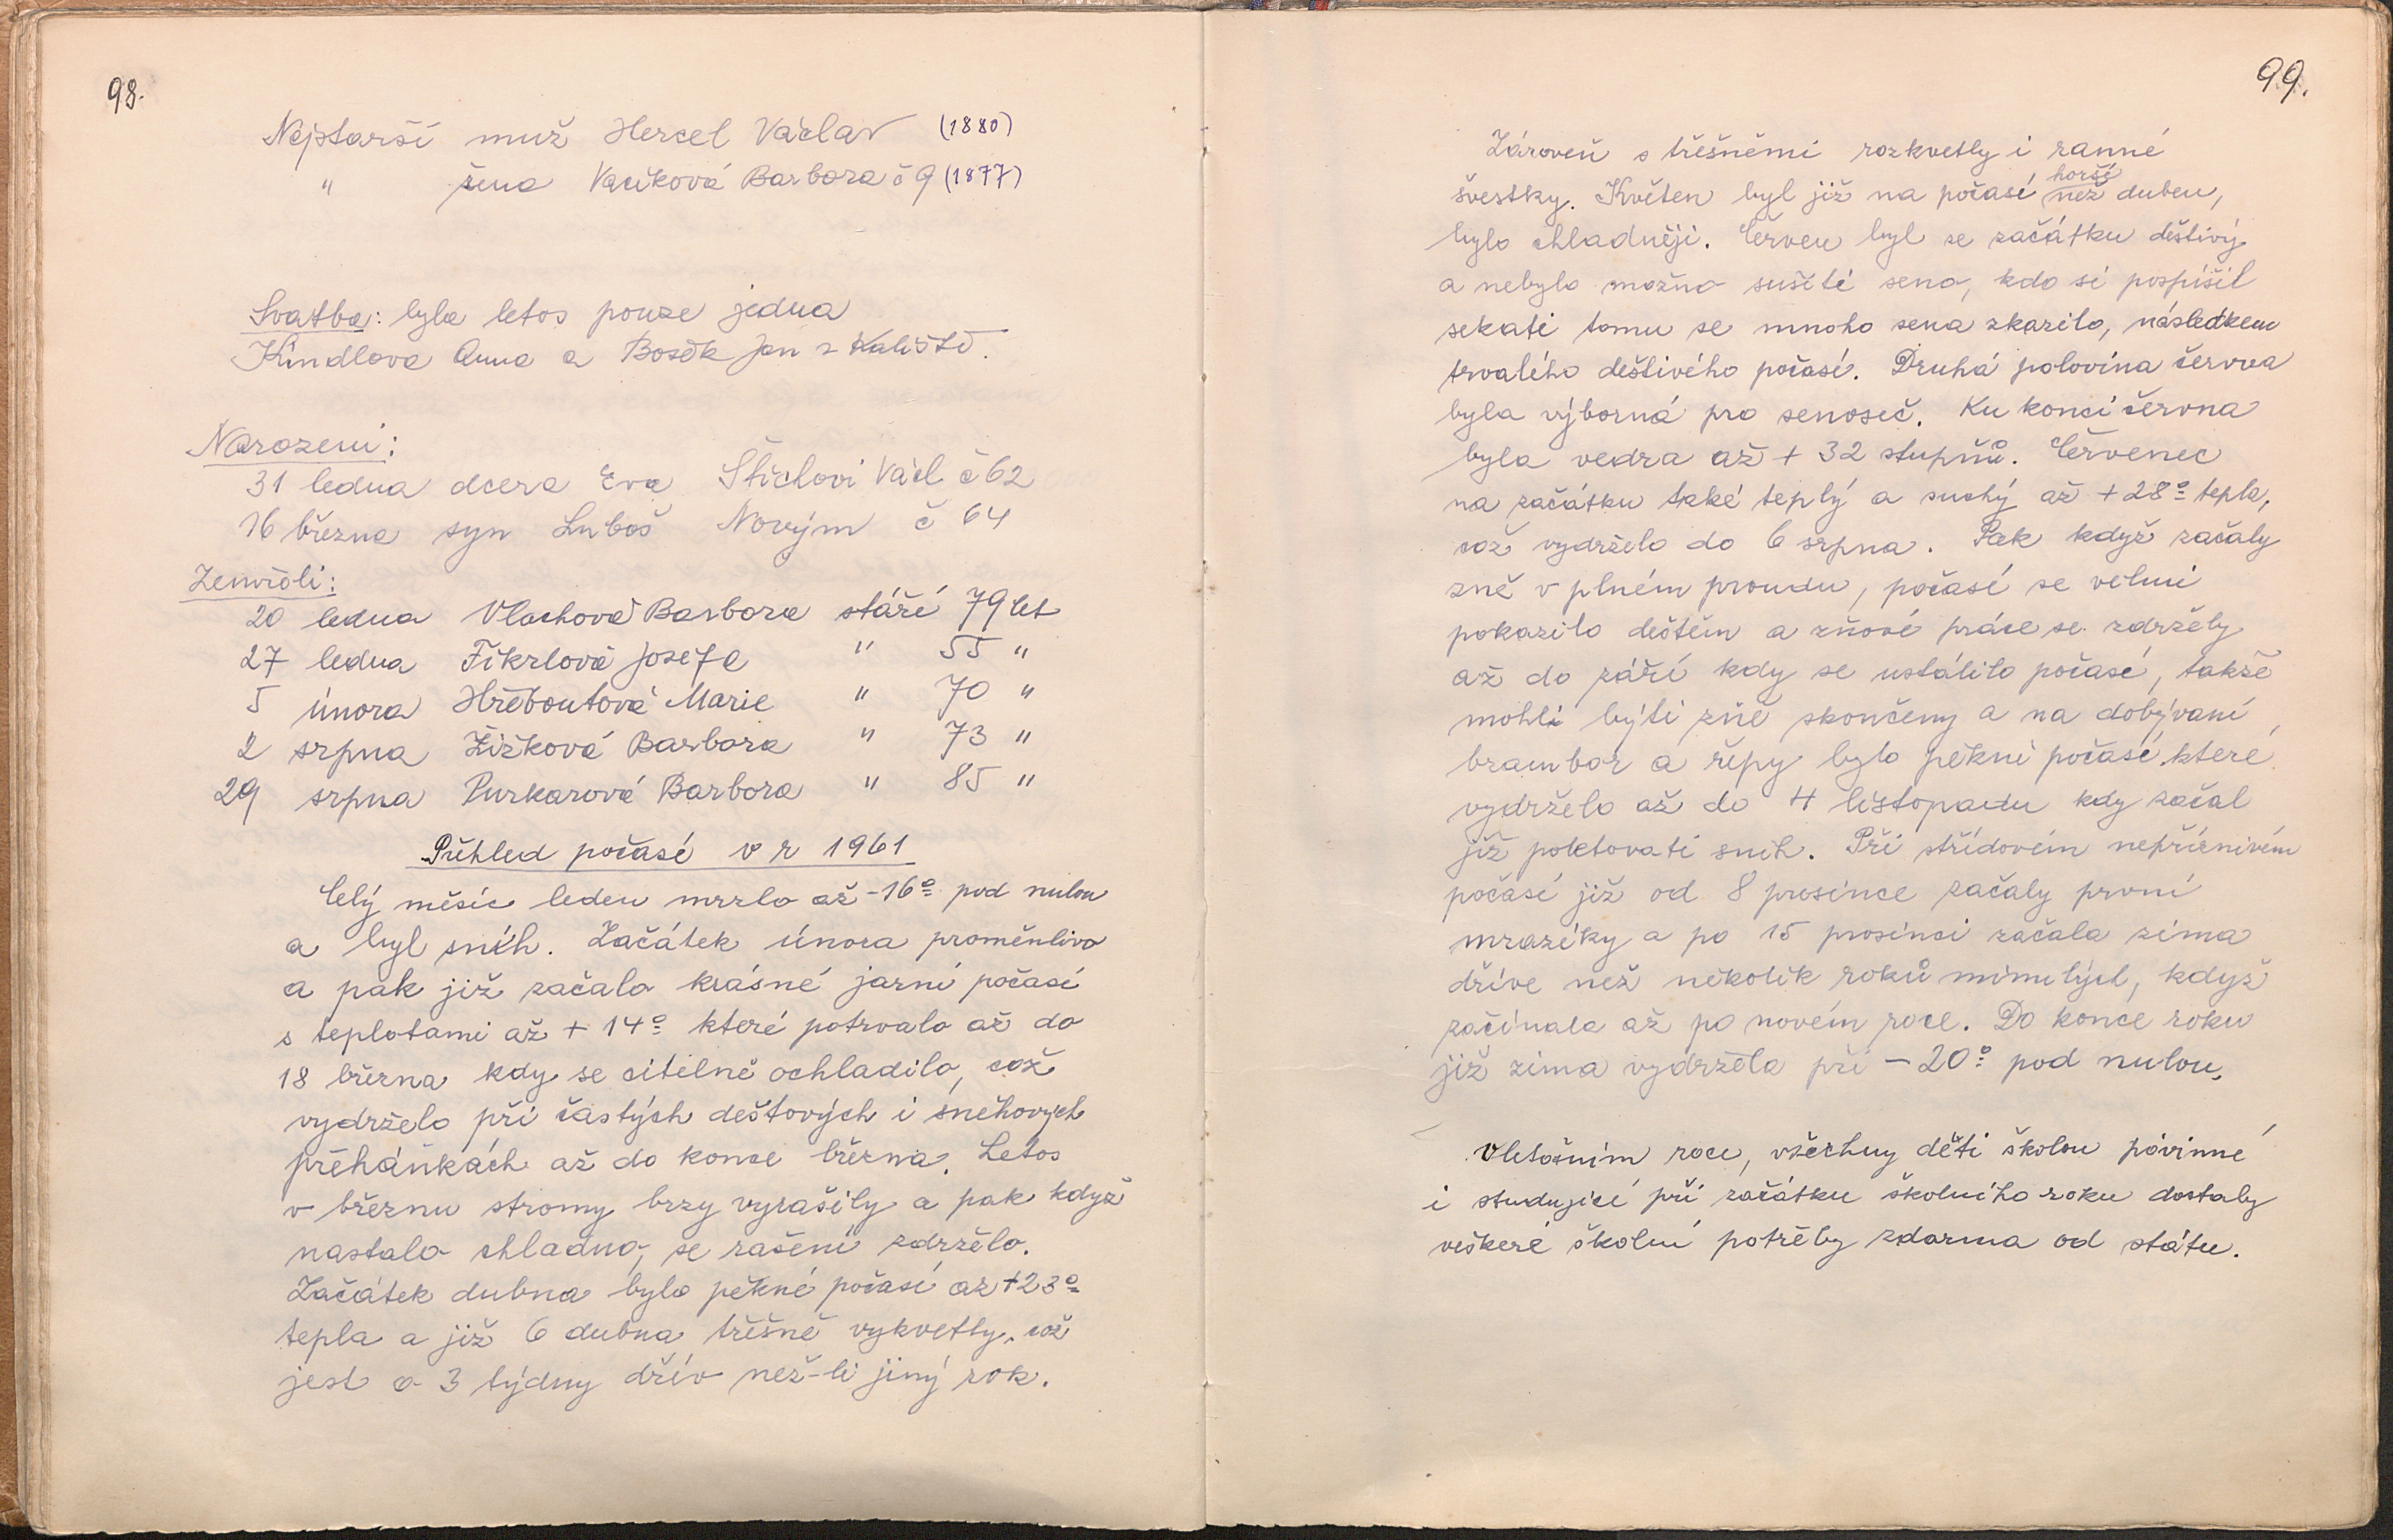 98.
Nejstarší muž Hercel Václav (1880)
" žena Vaciková Barbora č 9 (1877)
Svatba: byla letos pouze jedna
Kindlova Anna a Bosek Jan z Kaliště.
Narozeni:
31 ledna dcera Eva Štichovi Václ č 62
16 března syn Luboš Novým č 64
Zemřeli:
20 ledna Vlachová Barbora stáří 79 let
27 ledna Fikrlová Josefa " 55 "
5 února Hřeboutová Marie " 70 "
2 srpna Žižková Barbora " 73 "
29 srpna Purkarová Barbora " 85 "
Přehled počasí v r 1961
Celý měsíc leden mrzlo až -16° pod nulou
a byl sníh. Začátek února proměnlivo
a pak již začalo krásné jarní počasí
s teplotami až + 14° které potrvalo až do
18 března kdy se citelně ochladilo, což
vydrželo při častých deštových i sněhových
přeháňkách až do konce března. Letos
v březnu stromy brzy vyrašily a pak když
nastalo chladno, se rašení zdrželo.
Začátek dubna bylo pěkné počasí až +23°
tepla a již 6 dubna třešně vykvetly, což
jest o 3 týdny dřív než-li jiný rok.
99.
Zároveň s třešněmi rozkvetly i ranné
švestky. Květen byl již na počasí horší než duben,
bylo chladněji. Červen byl ze začátku deštivý
a nebylo možno sušiti seno, kdo si pospíšil
sekati tomu se mnoho sena zkazilo, následkem
trvalého deštivého počasí. Druhá polovina červva
byla výborná pro senoseč. Ku konci června
byla vedra až + 32 stupňů. Červenec
na začátku také teplý a suchý až + 28° tepla,
což vydrželo do 6 srpna. Pak když začaly
žně v plném proudu, počasí se velmi
pokazilo deštěm a žňové práce se zdržely
až do září kdy se ustálilo počasí, takže
mohli býti žně skončeny a na dobývaní
brambor a řepy bylo pěkné počasí, které
vydrželo až do 4 listopadu kdy začal
již poletovati sníh. Při střídovém nepříznivém
počasí již od 8 prosince začaly první
mrazíky a po 15 prosinci začala zima
dříve než několik roků minulých, když
začínala až po novém roce. Do konce roku
již zima vydržela při - 20° pod nulou.
V letošním roce, všechny děti školou povinné
i studující při začátku školního roku dostaly
veškeré školní potřeby zdarma od státu.